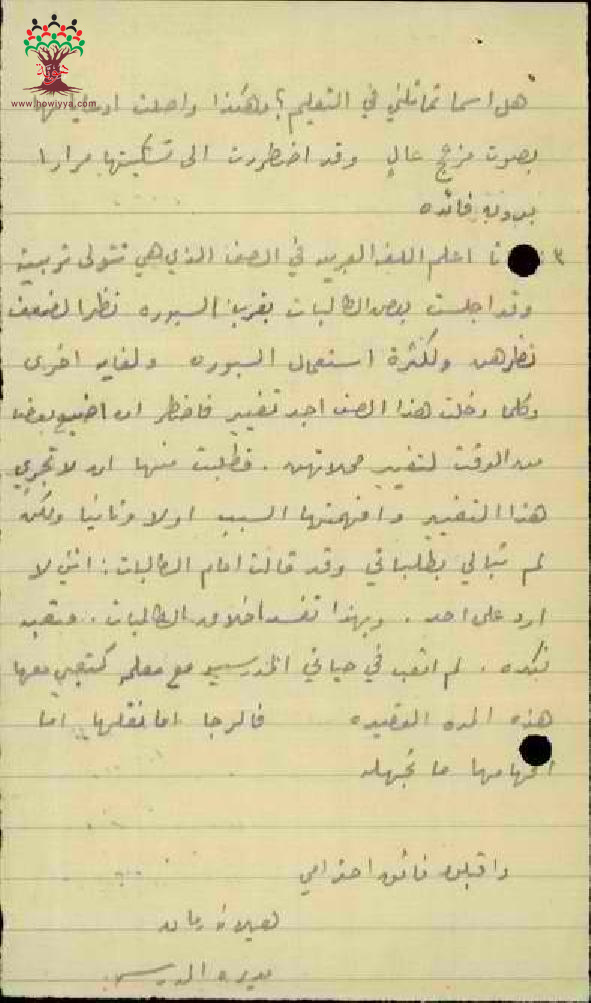 www.howiyya.com
هل اسما تماثلني في التعليم؟ وهكذا واصلت
بصوت مزعج عالٍ وقد اضطررت الى تسكيتها مرارا
بدون فائده
٣ اعلم اللغه العربيه في الصف الذي هي تتولى تربيته
وقد اجلست بعض الطالبات بقرب السبوره نظرا لضعف
نظرهن ولكثرة استعمال السبوره ولغايه اخرى
وكلما دخلت هذا الصف اجد تغيير فاضطر ان اضيع بعض
من الوقت لتغيير محلاتهن. فطلبت منها ان لا تجري
هذا التغيير وافهمتها السبب اولا وثانيا ولكن
لم تبالي بطلباتي وقد قالت امام الطالبات: انني لا
ارد على احد. وبهذا تفسد اخلاق الطالبات.
لم اتعب في حياتي المدرسيه مع معلمه كتعبي معها
هذه المده القصيره فالرجا اما نقلها اما
افهامها ما تجهله
واقبلوا فائق احترامي
مديره المدرسه